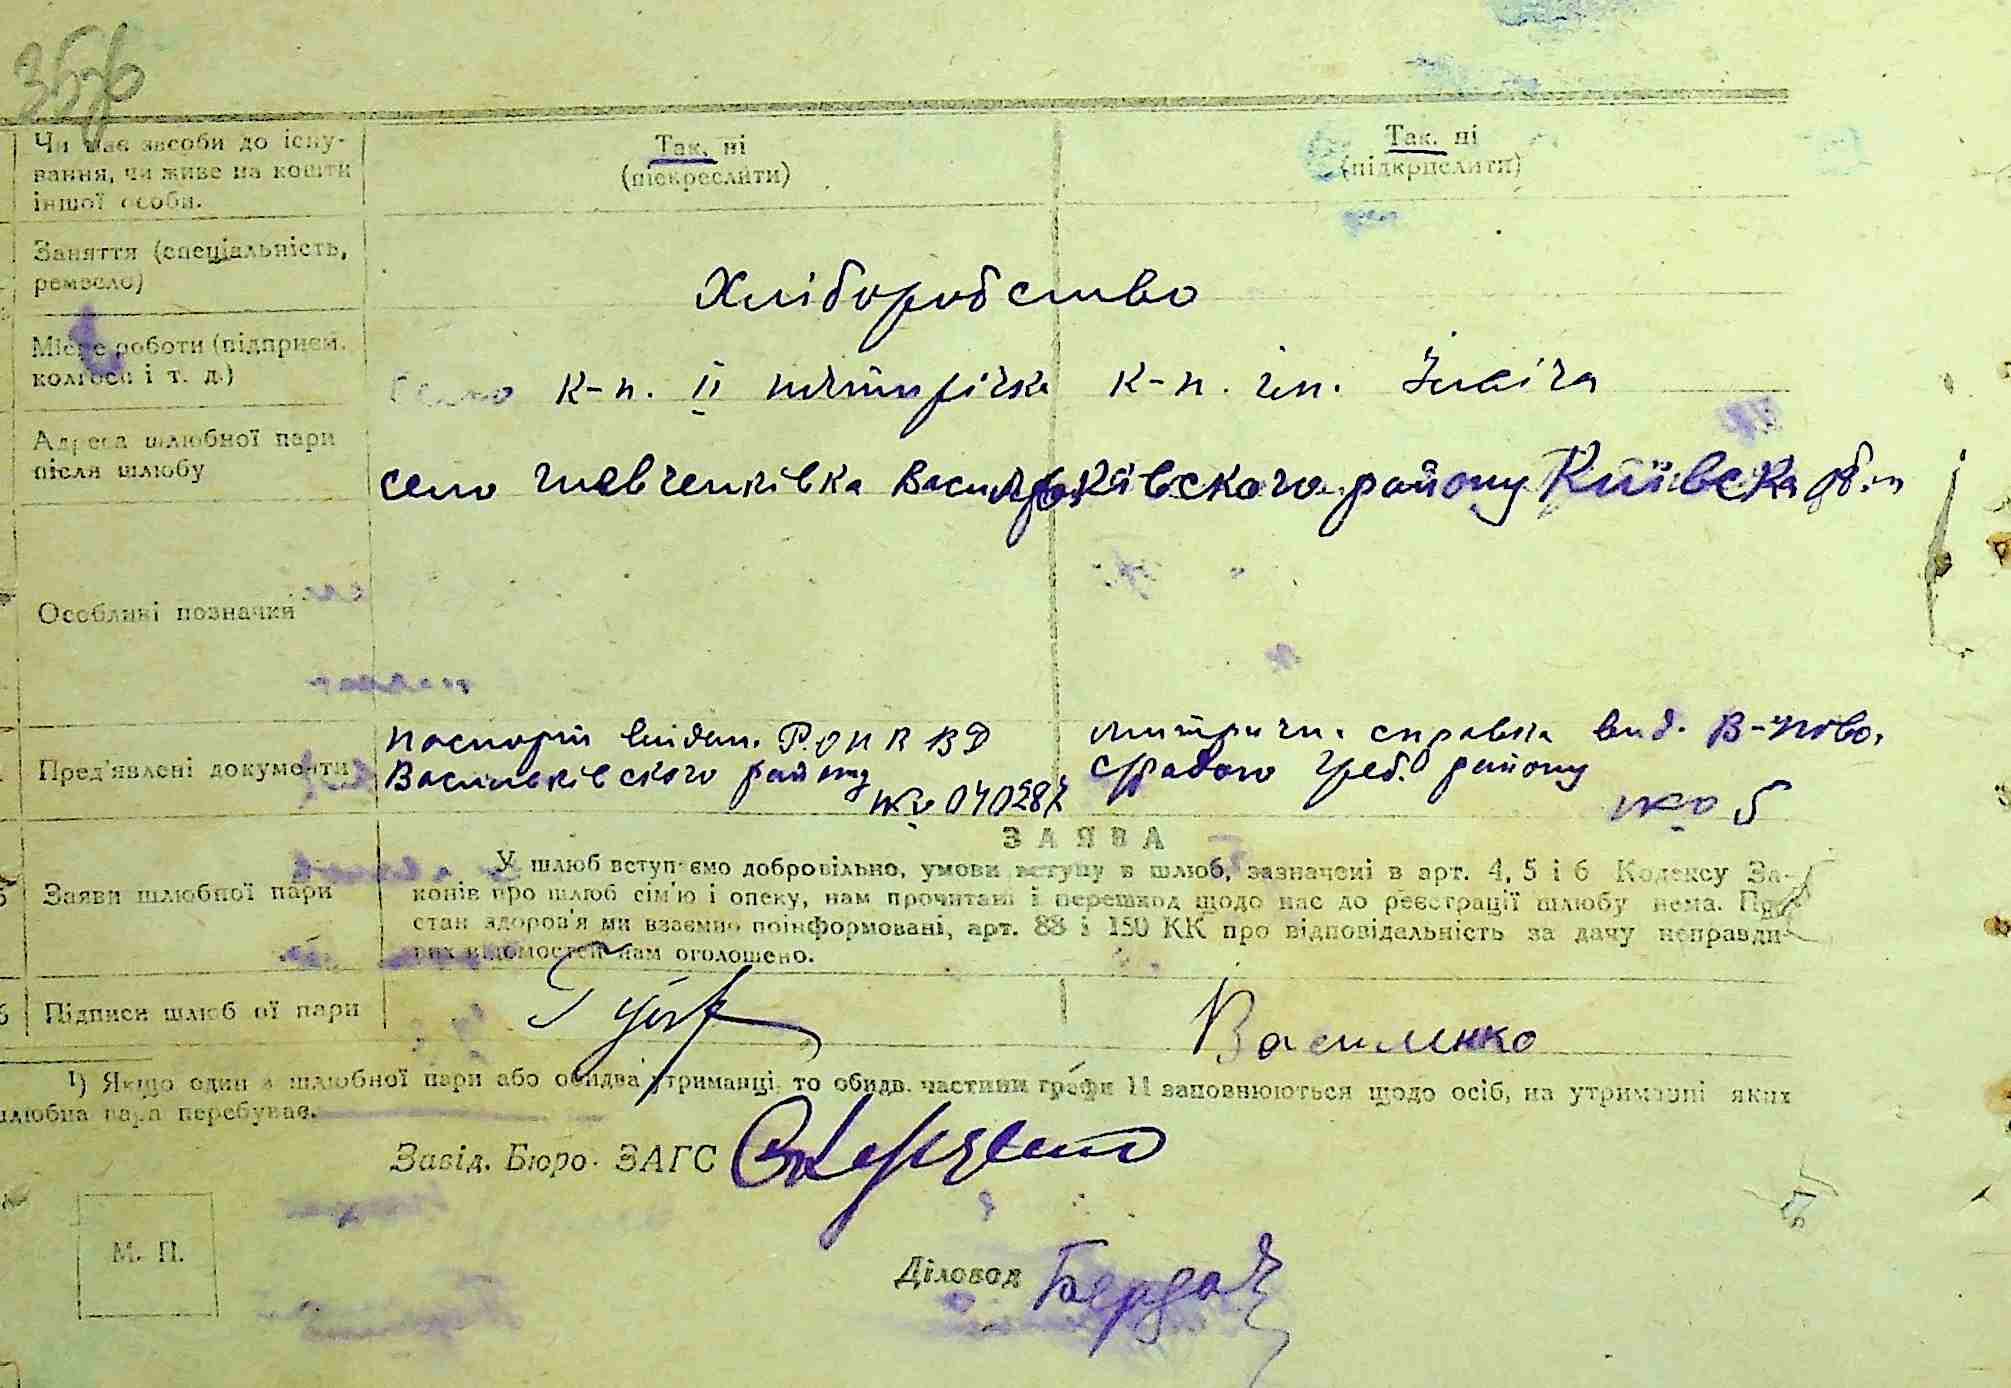 36 зв
Чи має засоби до існу-
вання, чи живе на кошти
іншої особи.
Так, ні
(підкреслити)
Так, ні
(підкреслити)
Заняття (спеціальність,
ремесло)
Хліборобство
Місце роботи (підприєм.
колгосп і т. д.)
к-п. ІІ пятирічка
к-п. ім. Ілліча
Адреса шлюбної пари
після шлюбу
село Шевченківка Васильківского району Київска обл
Особливі позначки
Пред'явлені документи
Паспорт видан. Р.О Н К В Д
Васильківского району
№ 040287
митричн. справка вид.
району
№ 5
ЗАЯВА
Заяви шлюбної пари
У шлюб вступаємо добровільно, умови вступу в шлюб, зазначені в арт. 4, 5 і 6 Кодексу За-
конів про шлюб сім'ю і опеку, нам прочитані і перешкод щодо нас до реєстрації шлюбу нема. Про
стан здоров'я ми взаємно поінформовані, арт. 88 і 150 КК про відповідальність за дачу неправди-
вих відомостей нам оголошено.
6 Підписи шлюбної пари
Василенко
1) Якщо один з шлюбної пари або обидва утриманці, то обидв. частини графи 11 заповнюються щодо осіб, на утриманні яких
шлюбна пара перебуває.
Завід. Бюро ЗАГС
М. П.
Діловод